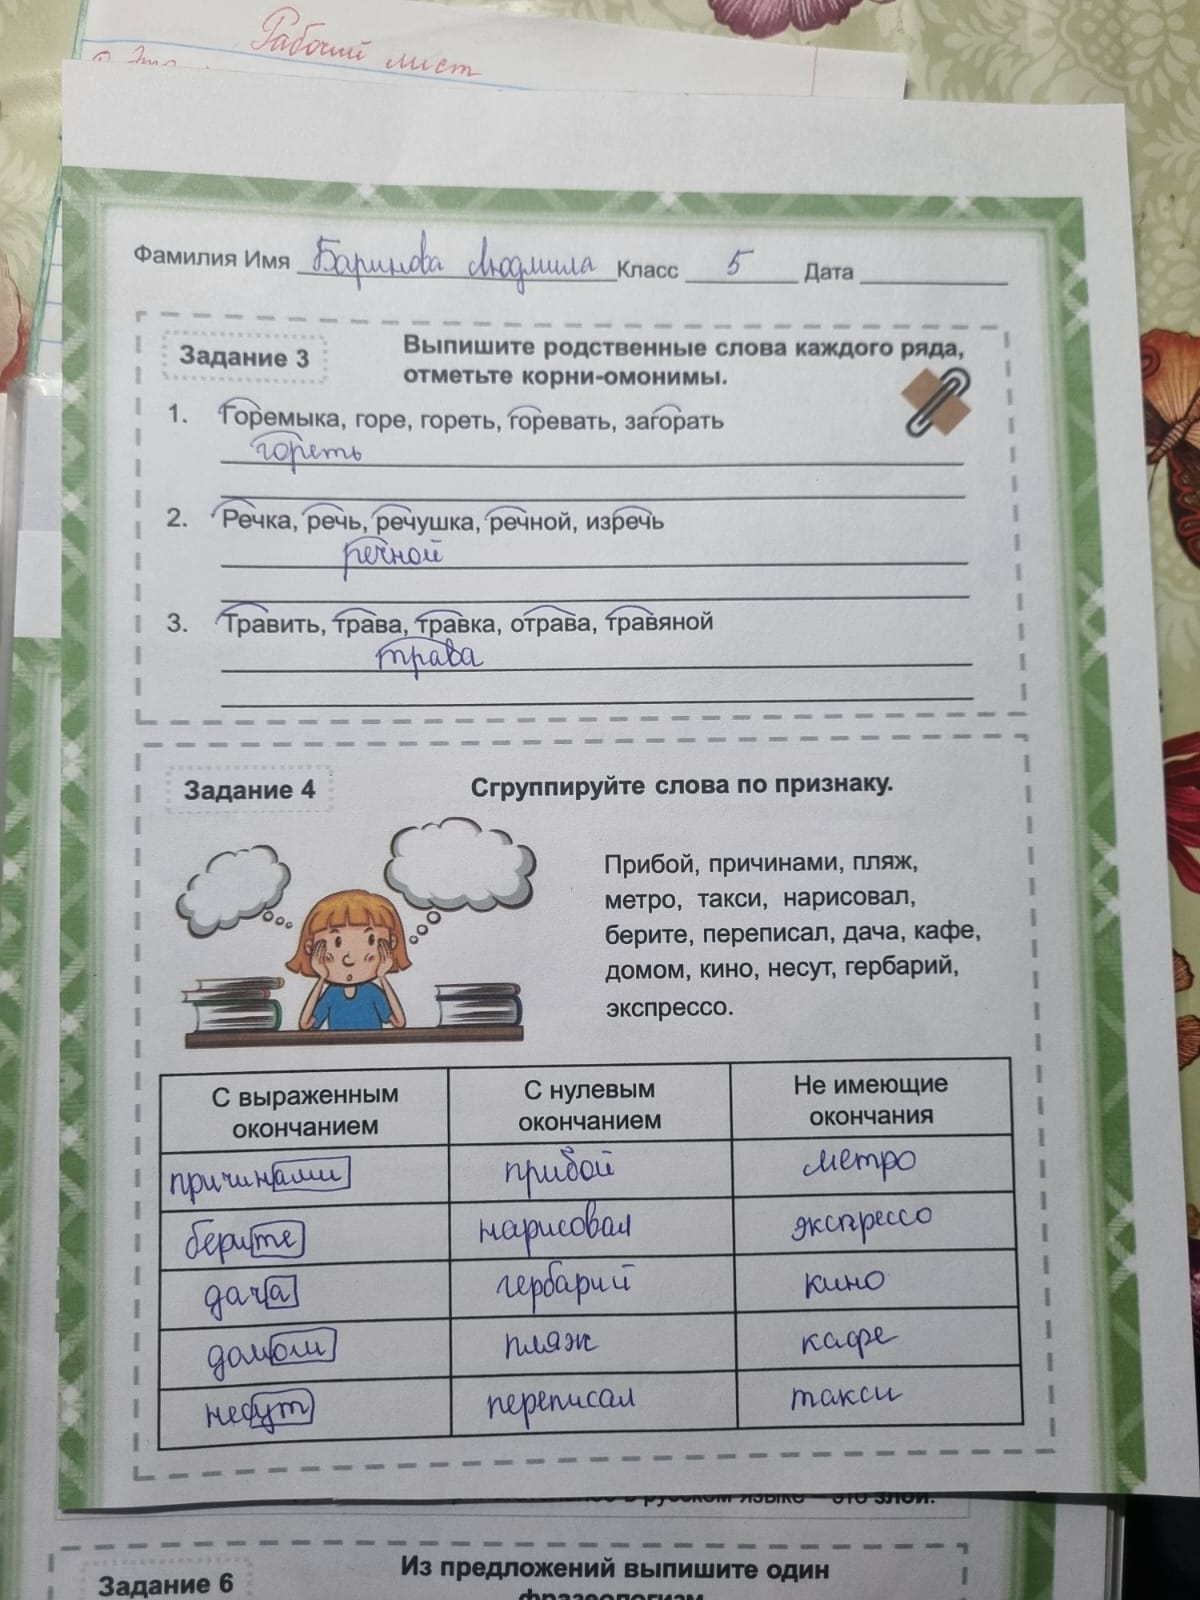 Рабочий лист
Фамилия Имя Баринова Людмила Класс 5 Дата
Задание 3
Выпишите родственные слова каждого ряда,
отметьте корни-омонимы.
1. Горемыка, горе, гореть, горевать, загорать
гореть
2. Речка, речь, речушка, речной, изречь
речной
3. Травить, трава, травка, отрава, травяной
трава
Задание 4
Сгруппируйте слова по признаку.
Прибой, причинами, пляж,
метро, такси, нарисовал,
берите, переписал, дача, кафе,
домом, кино, несут, гербарий,
экспрессо.
С выраженным окончанием
С нулевым окончанием
Не имеющие окончания
причинами прибой метро
берите нарисовал экспрессо
дача гербарий кино
домом пляж кафе
несут переписал такси
в русском языке – это злой.
Задание 6
Из предложений выпишите один
фразеологизм